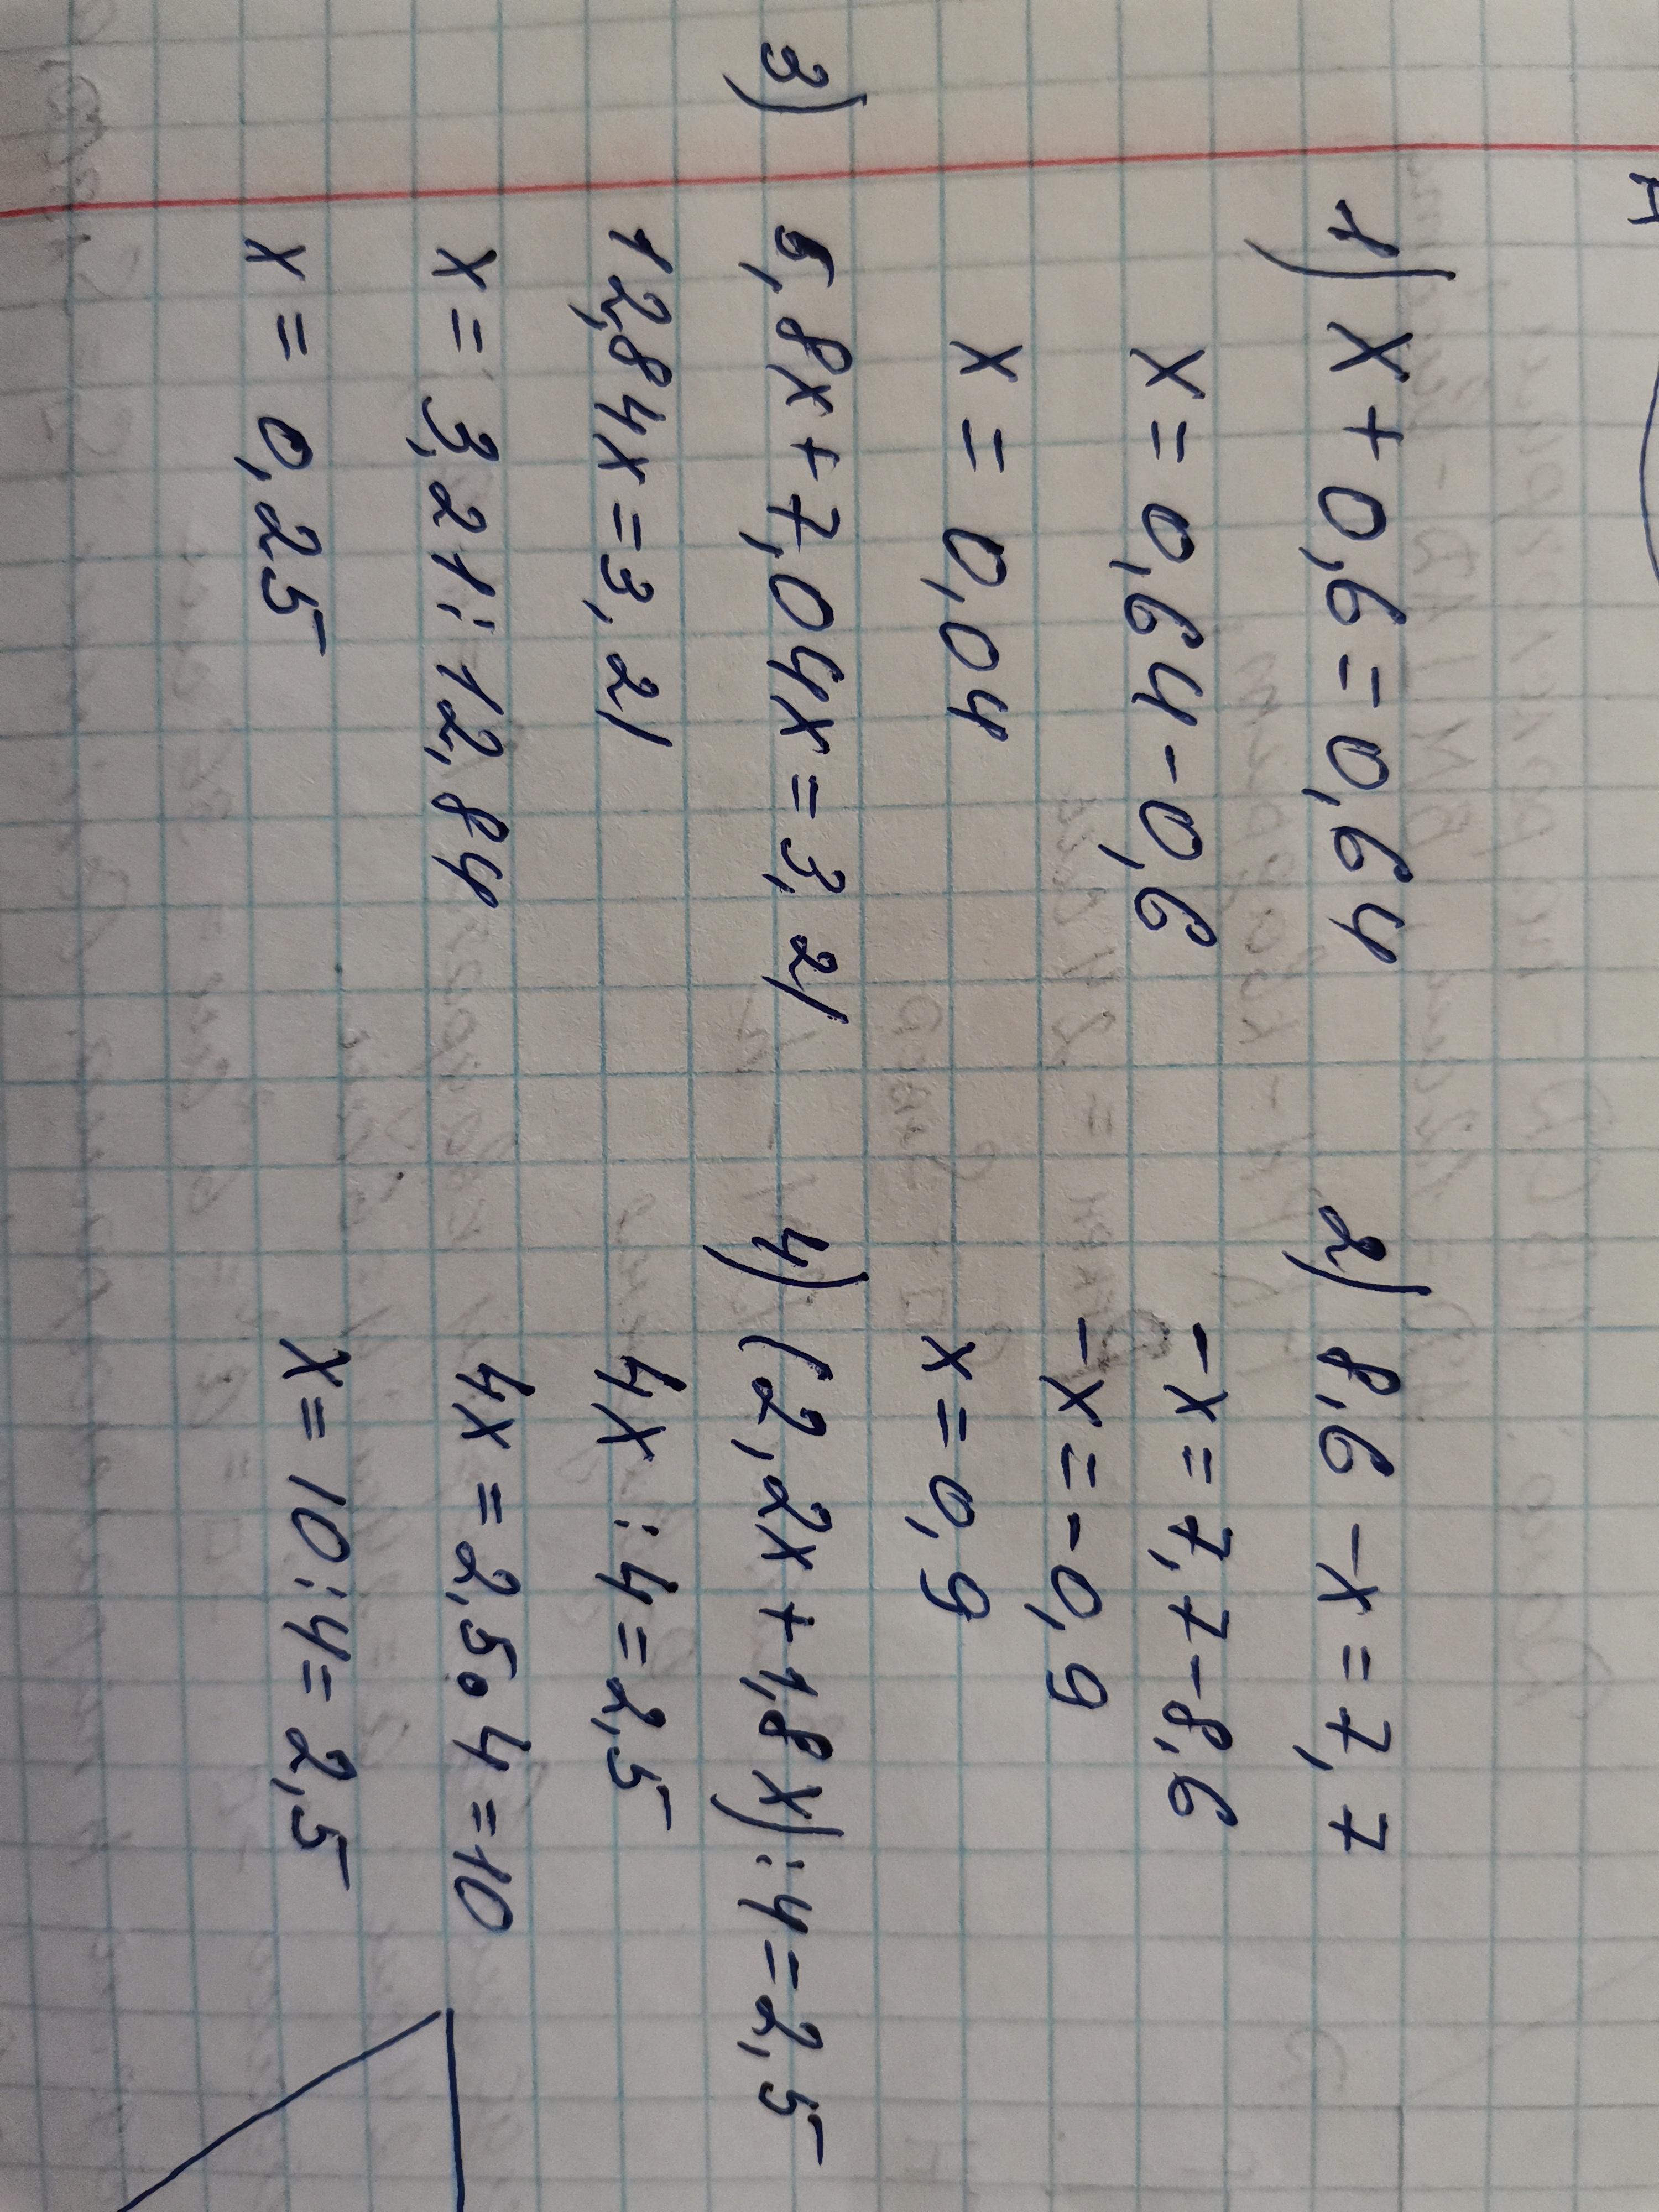 A
1) x + 0,6 = 0,64
x = 0,64 - 0,6
x = 0,04
2) 8,6 - x = 7,7
-x = 7,7 - 8,6
-x = -0,9
x = 0,9
3) 5,8x + 7,04x = 3,21
12,84x = 3,21
x = 3,21 : 12,84
x = 0,25
4) (2,2x + 1,8x) : 4 = 2,5
4x : 4 = 2,5
4x = 2,5 • 4 = 10
x = 10 : 4 = 2,5